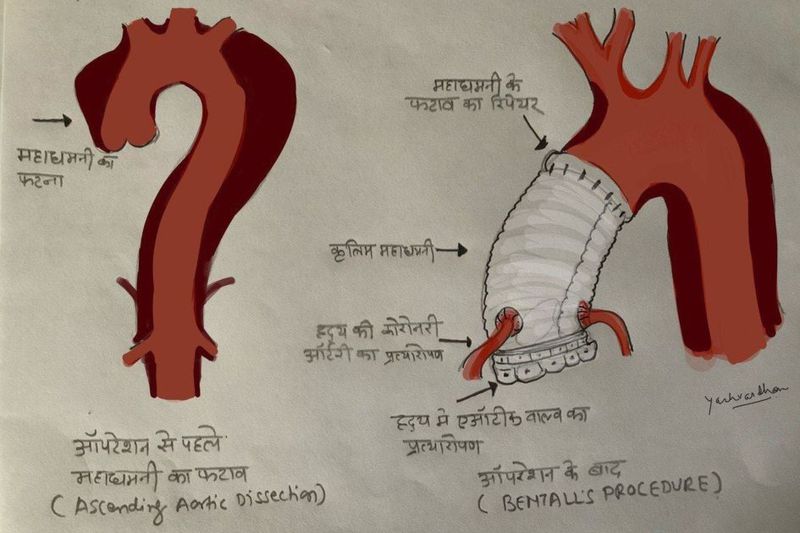 महाधमनी का
फटना
ऑपरेशन से पहले
महाधमनी का फटाव
(Ascending Aortic Dissection)
महाधमनी के
फटाव का रिपेयर
कृत्रिम महाधमनी
ह्रदय की कोरोनरी
ऑर्टरी का प्रत्यारोपण
ह्रदय मे एऑर्टीक वाल्व का
प्रत्यारोपण
ऑपरेशन के बाद
(BENTALL'S PROCEDURE)
Yashvardhan